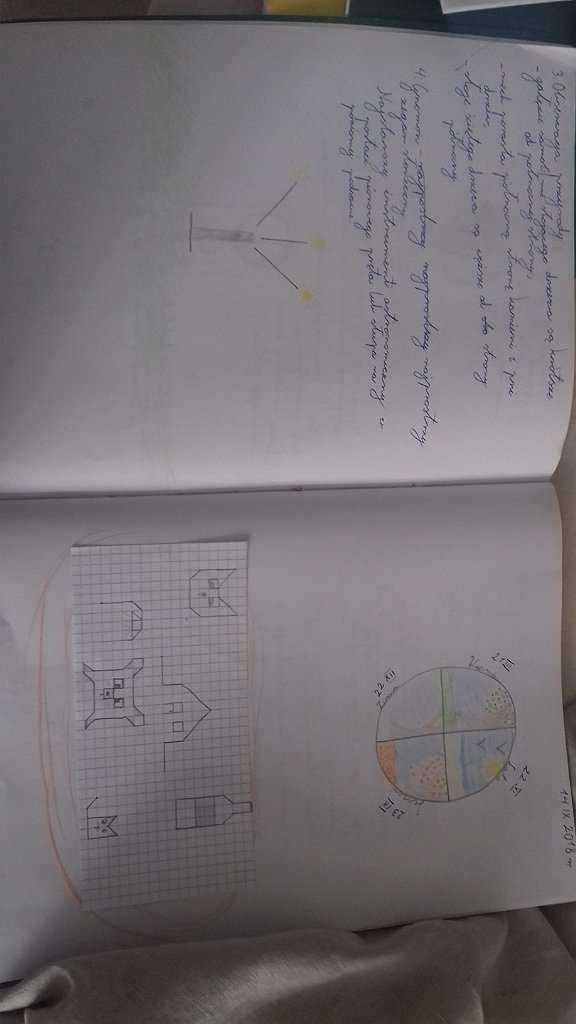 3. Obserwacja przyrody:
- gałęzie samotnie stojącego drzewa są krótsze
od północnej strony,
- mech porasta północną stronę kamieni i pni
drzew,
- słoje ściętego drzewa są węższe od strony
północy
4. Gnomon - najprostszy
zegar słoneczny
Najstarszy instrument astronomiczny w
postaci pionowego pręta lub słupa na
poziomej podstawie
14 IX 2018 r
21 III
Wiosna
22 VI
Lato
23 IX
Jesień
22 XII
Zima